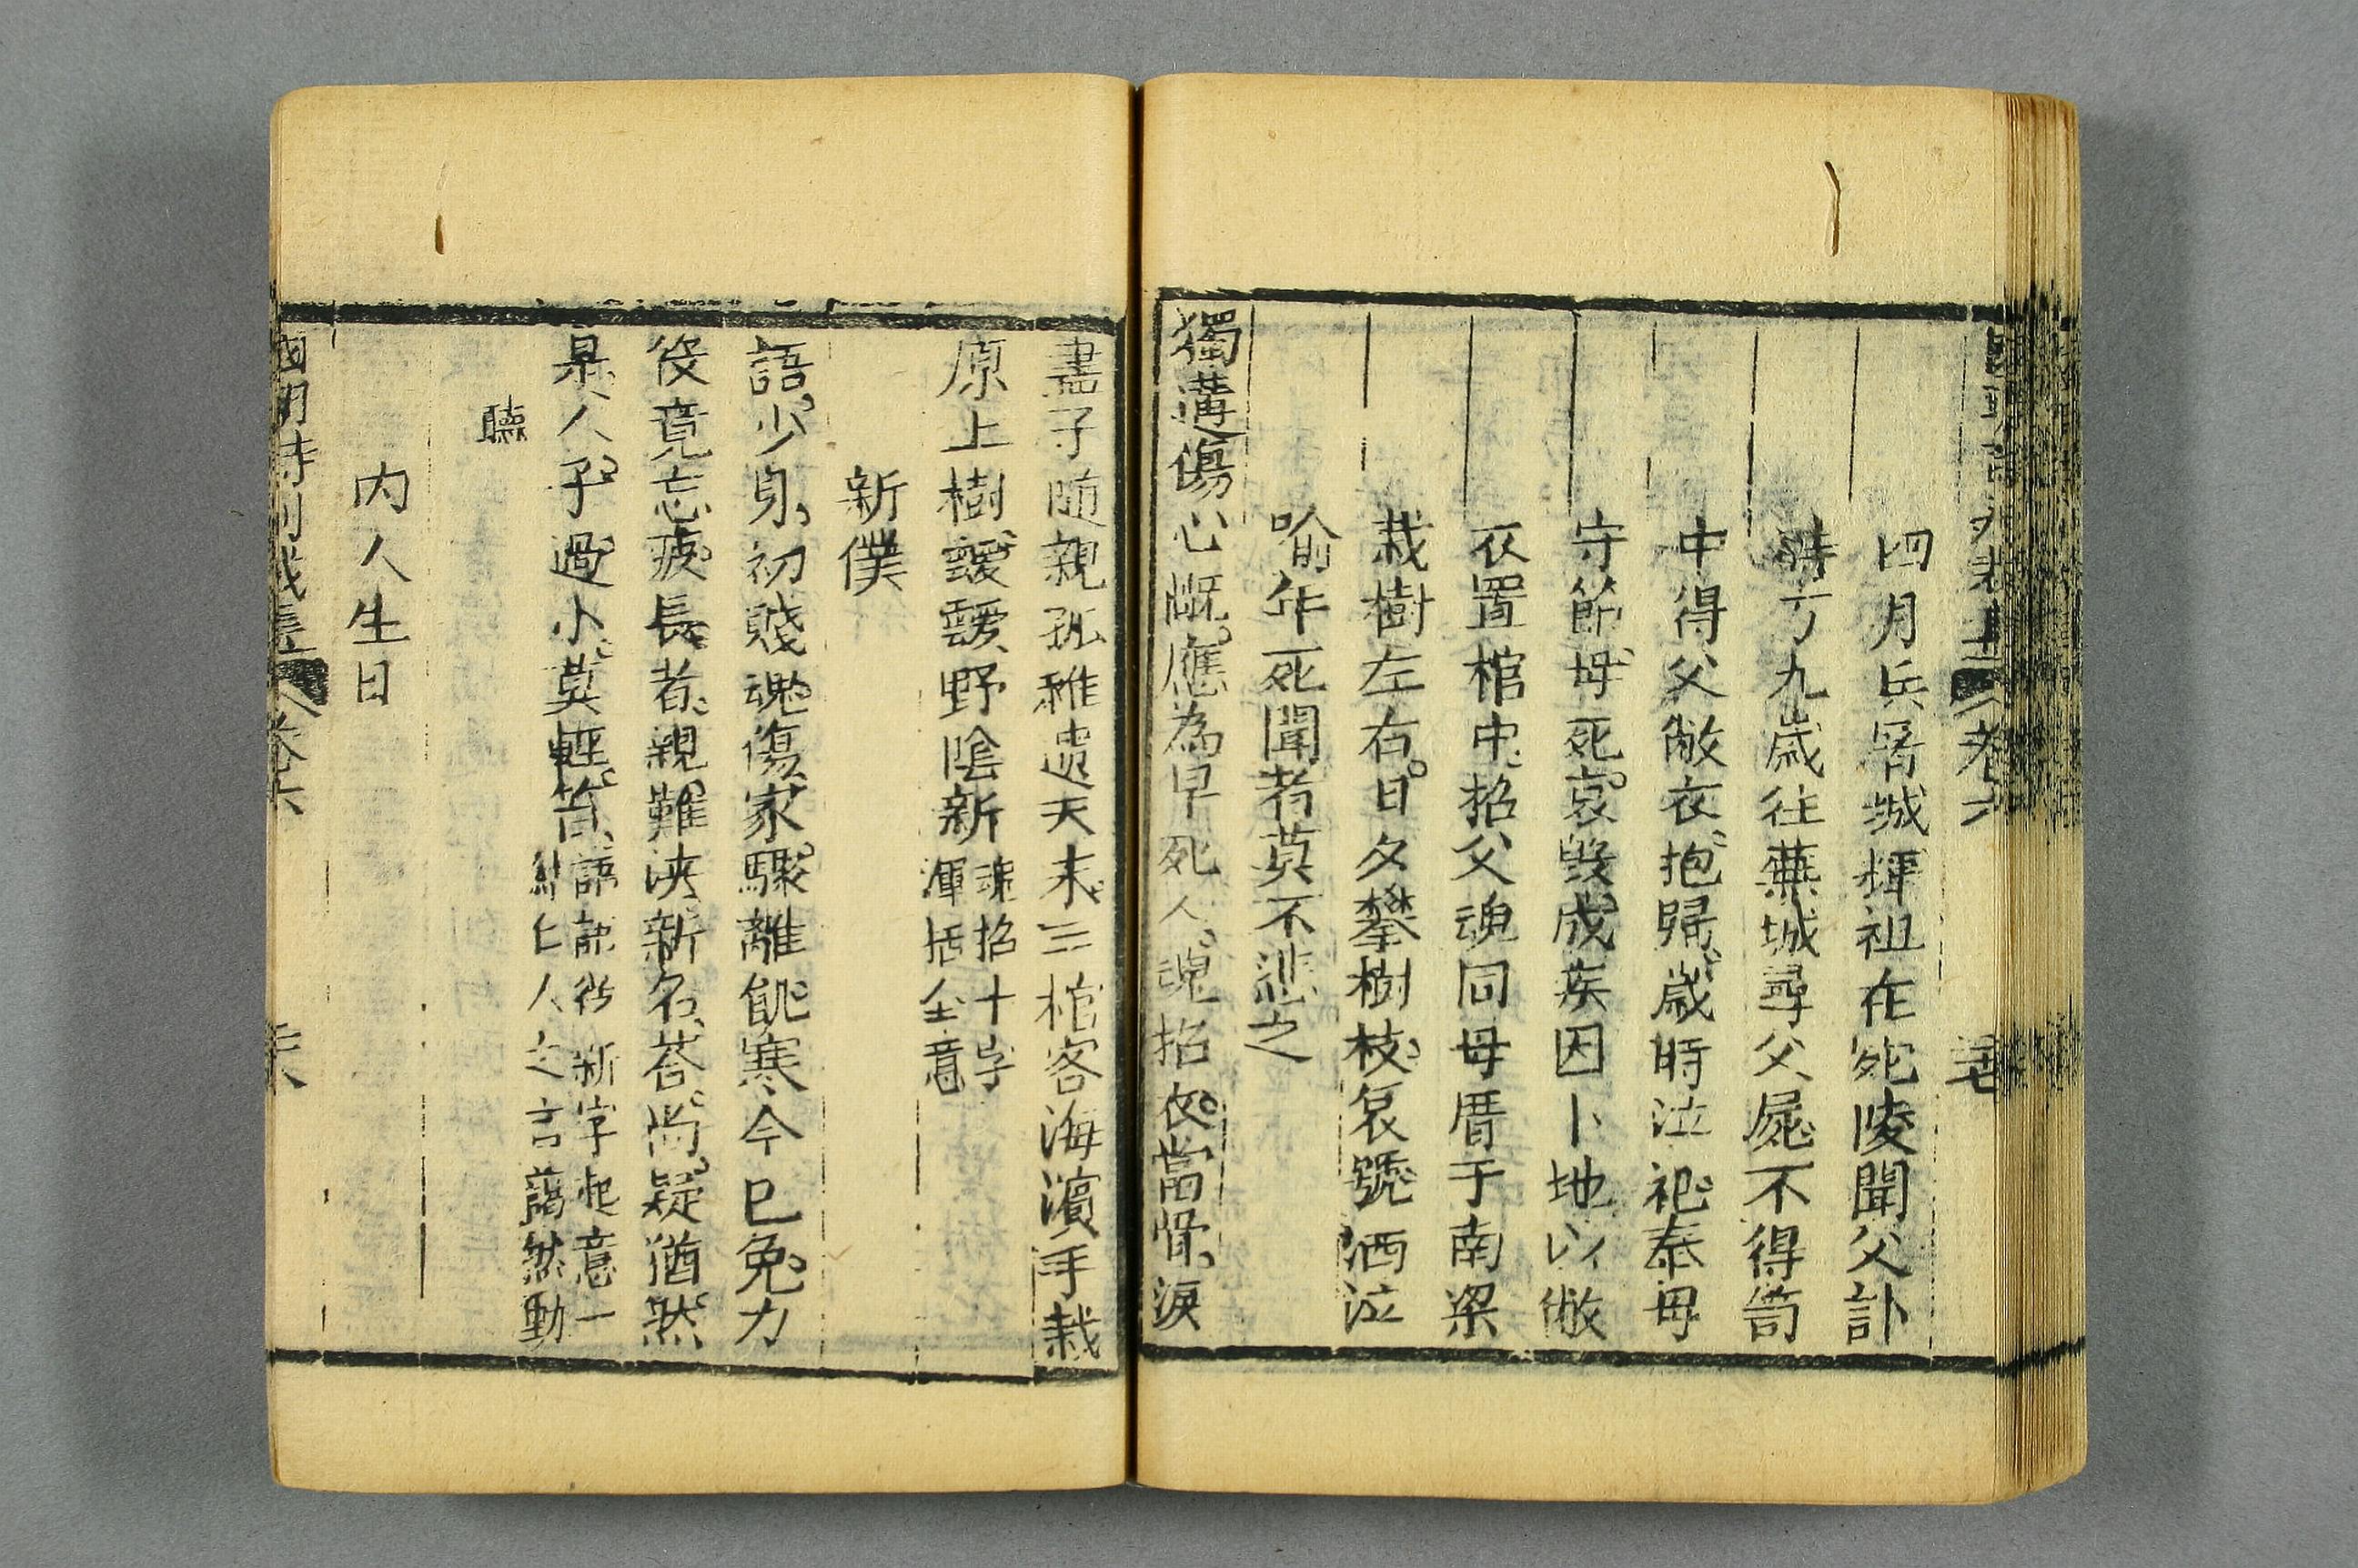 四月兵屠城揮祖在宛陵聞父訃
時方九歲往蕪城尋父屍不得笥
中得父敝衣抱歸歲時泣祀奉母
守節母死哀毀成疾因卜地以敝
衣置棺中招父魂同母厝于南梁
栽樹左右日夕攀樹枝哀號洒泣
喻年死聞者莫不悲之
獨遘傷心慨應為早死人魂招衣當骨淚
盡子随親孤稚遺天末三棺客海濱手栽
原上樹靉靉野陰新
魂招十字
渾括全意
新僕
語少身初賤魂傷家驟離飢寒今已免力
役竟忘疲長者親難浹新名荅尚疑猶然
是人子過小莫輕笞
語語從新字起意一
結仁人之言藹然動
聽
内人生日
卷六